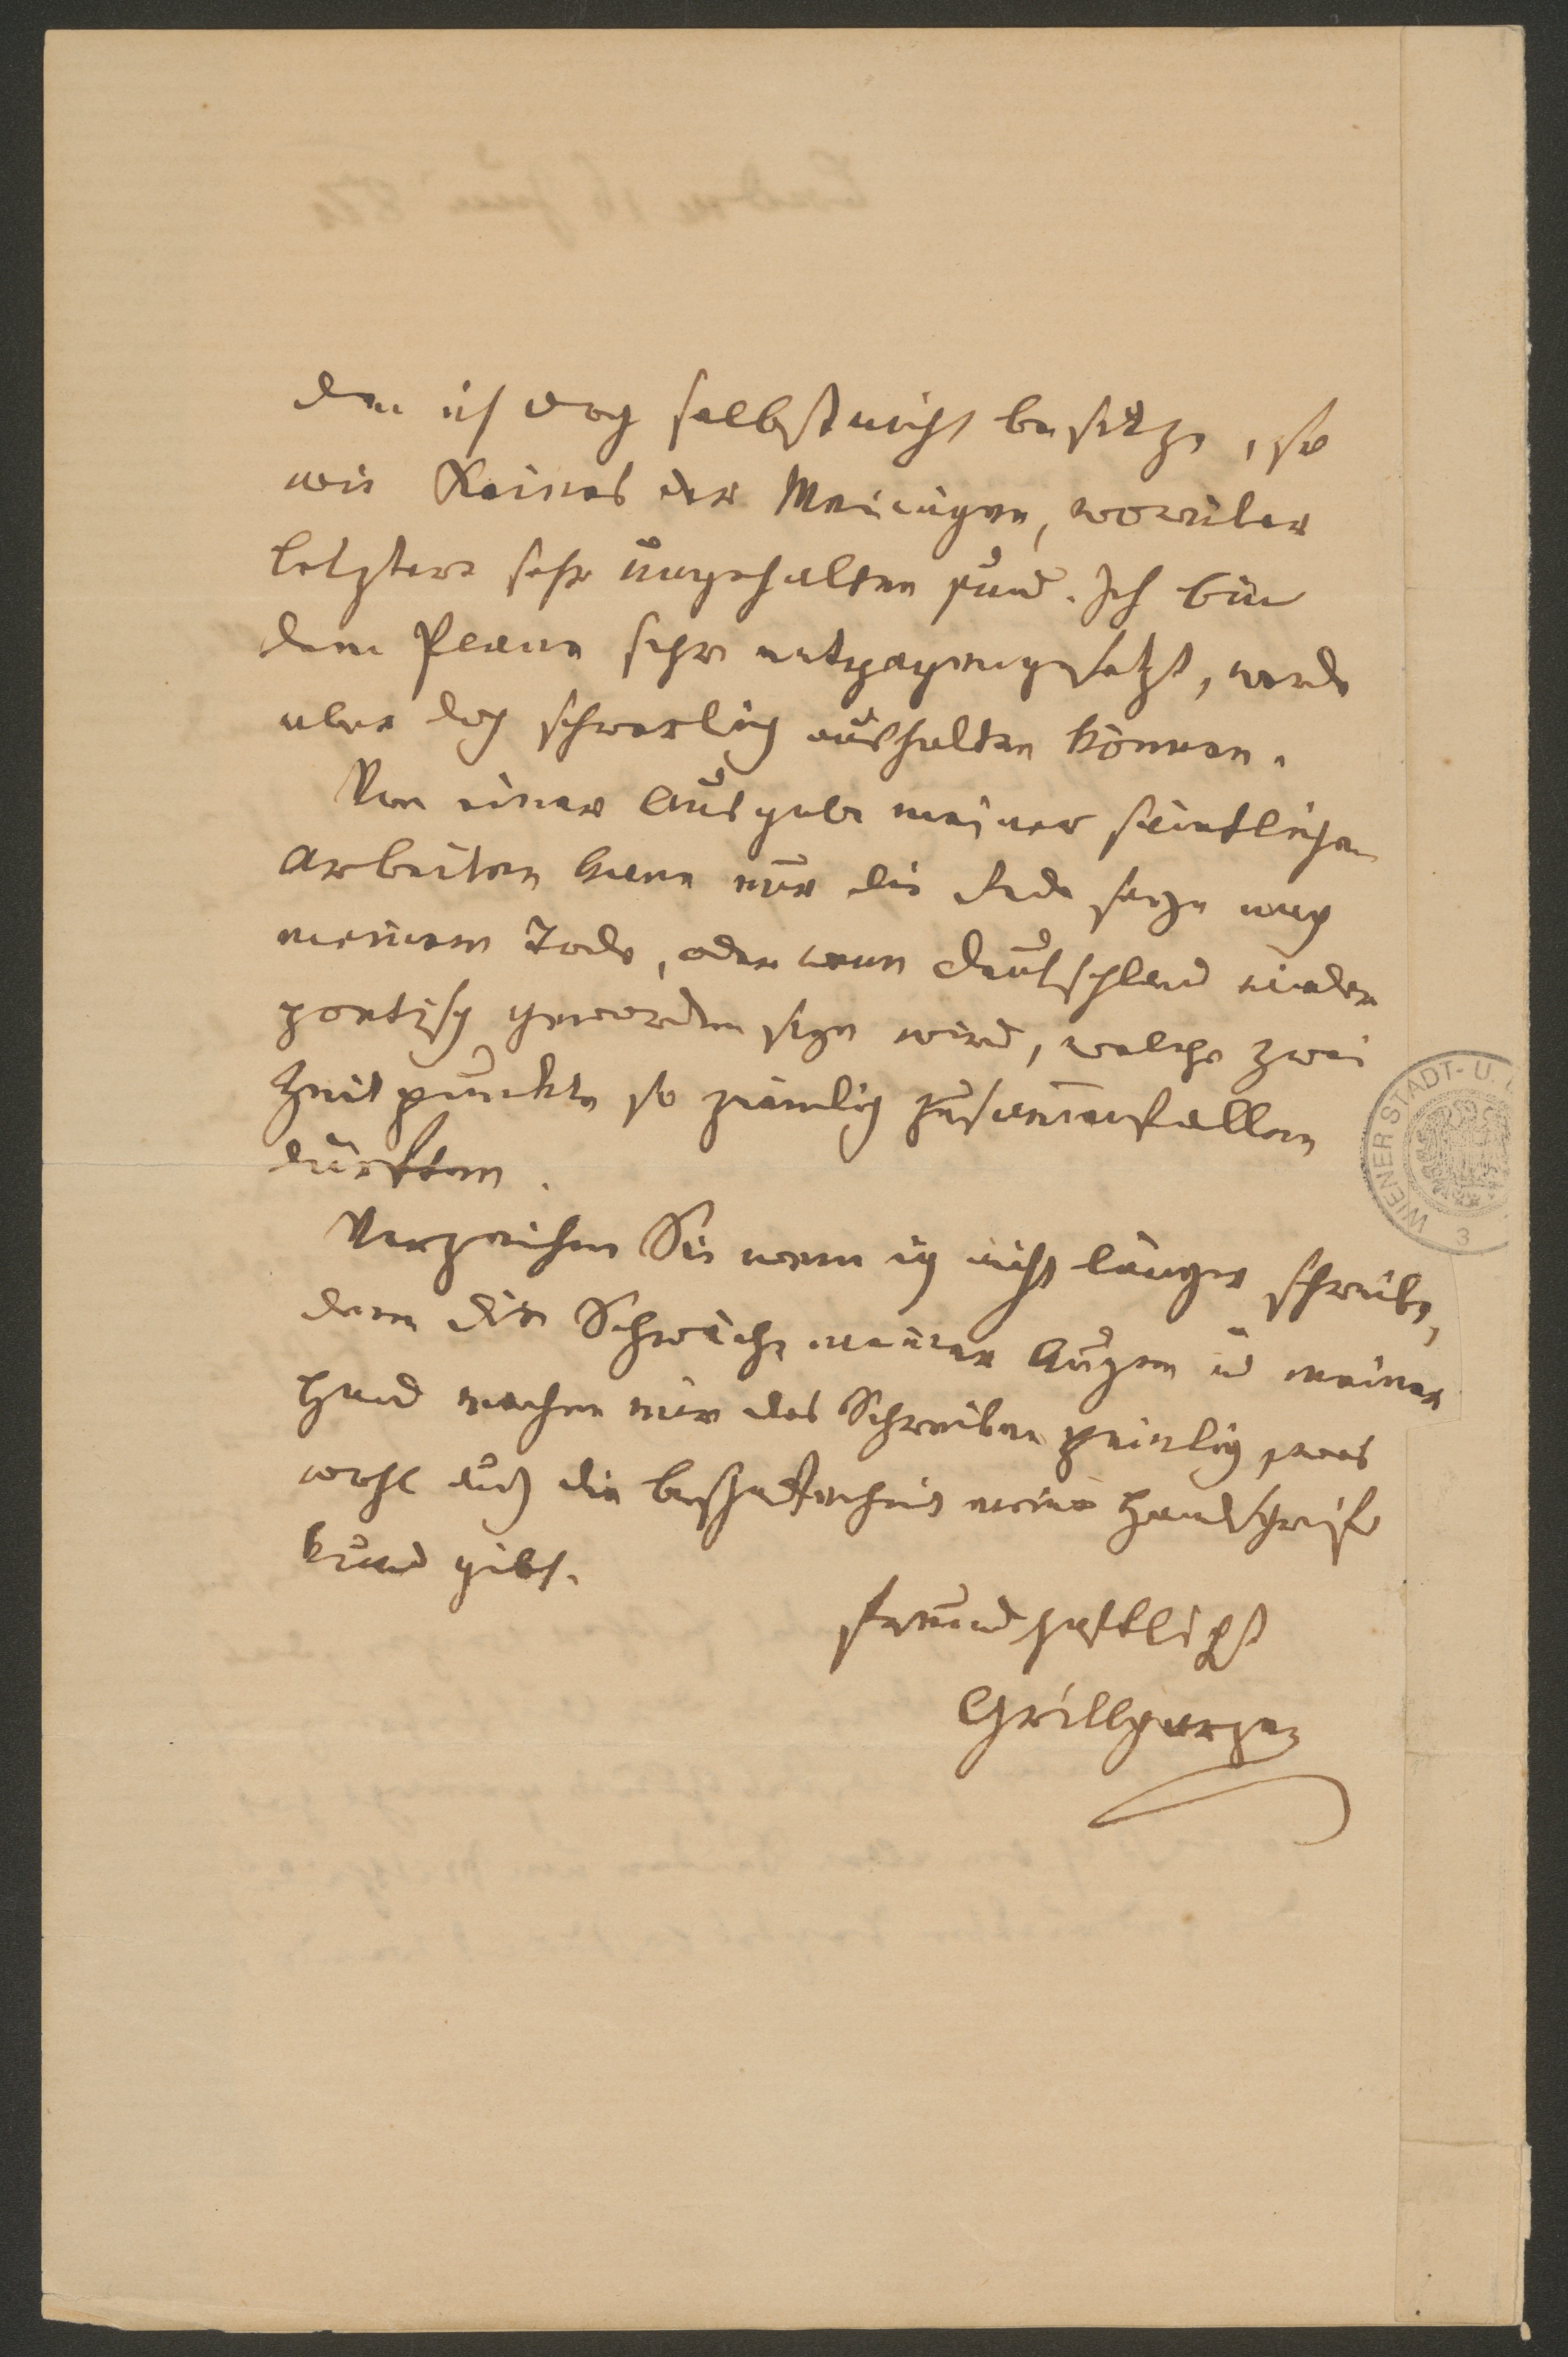 den ich doch selbst nicht besitze, so
wie Keines der Meinigen, worüber
letztere sehr ungehalten sind. Ich bin
dem Plane sehr entgegengesetzt, werde
aber doch schwerlich aushalten können.
Von einer Ausgabe meiner sämtlichen
Arbeiten kann nur die Rede seyn nach
meinem Tode, oder wenn Deutschland wieder
poetisch geworden seyn wird, welche zwei
Zeitpunkte so ziemlich zusammenfallen
dürften.
Verzeihen Sie wenn ich nicht länger schreibe,
denn die Schwäche meiner Augen u meiner
Hand machen mir das Schreiben peinlich, was
wohl auch die Beschaffenheit meiner Handschrift
kund gibt.
freundschaftlichst
Grillparzer
WIENER STADT- U.
3